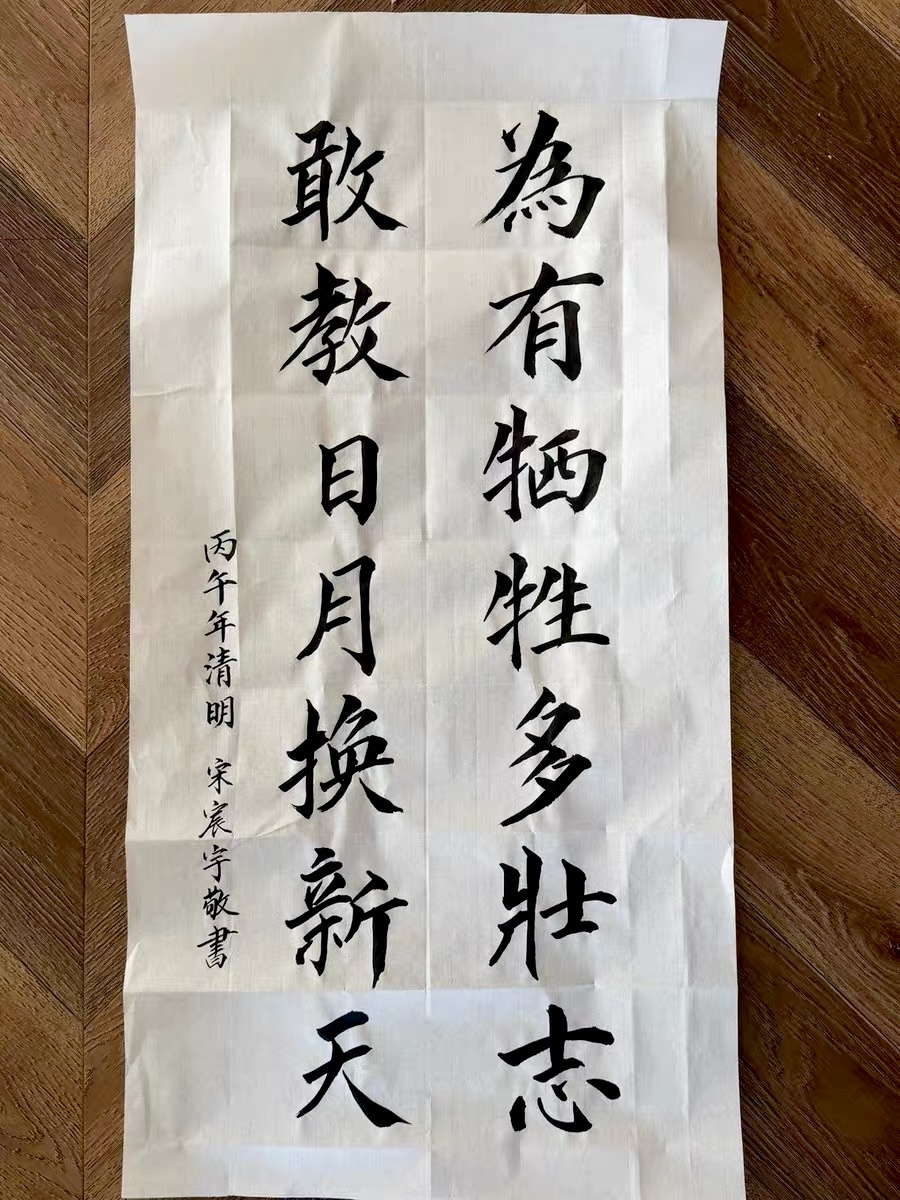 為有牺牲多壯志
敢教日月換新天
丙午年清明 宋宸宇敬書